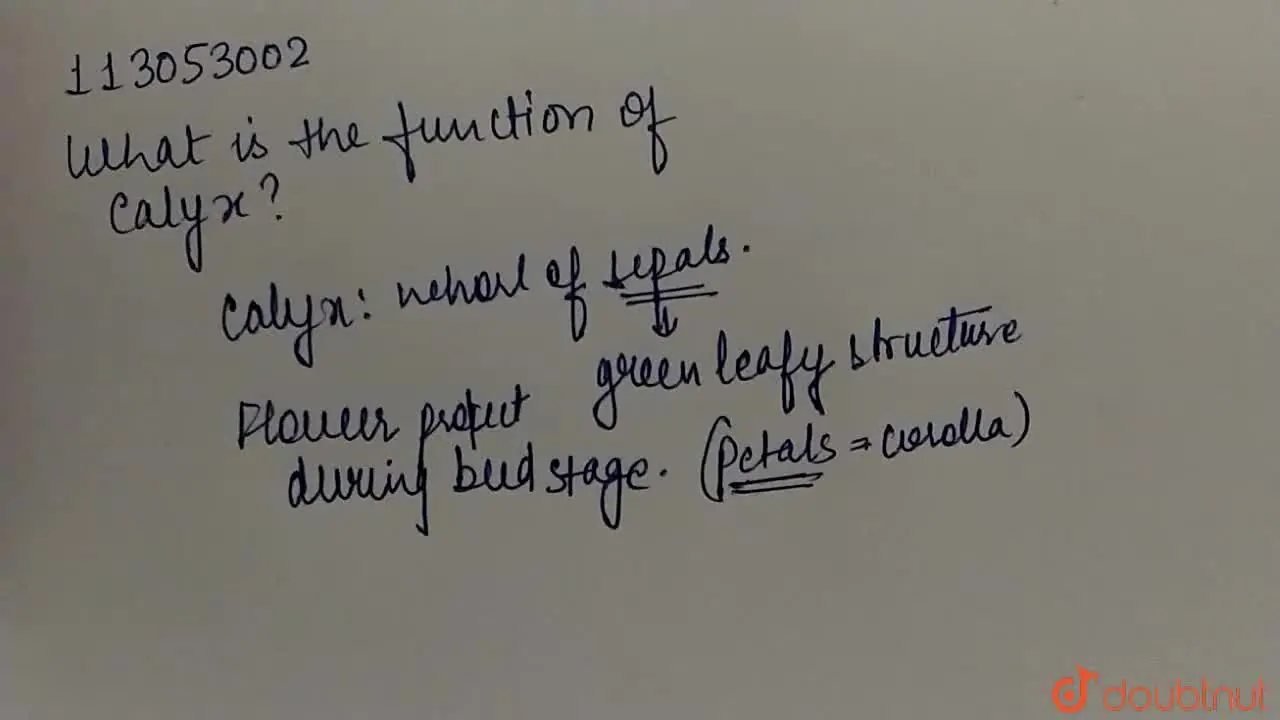 113053002
What is the function of
Calyx?
Calyx: whorl of sepals.
green leafy structure
Flower protect
during bud stage. (petals → corolla)
doubtnut